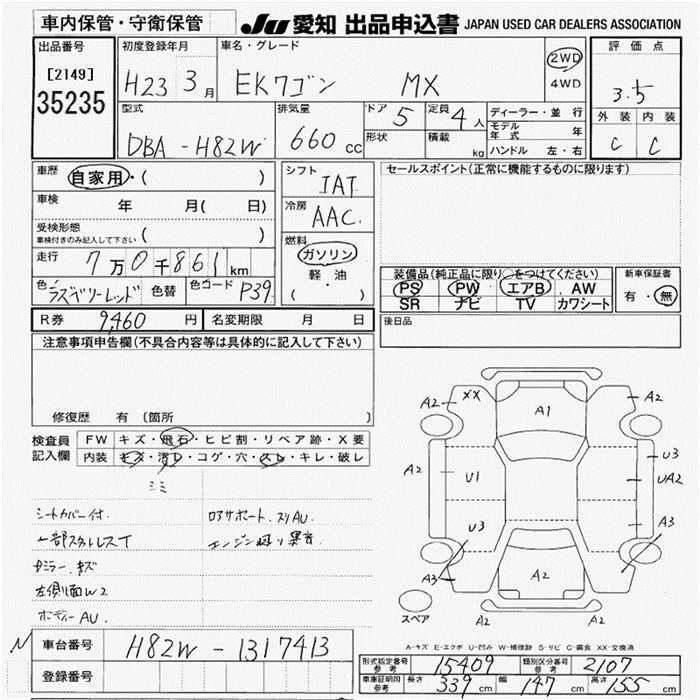 車内保管・守衛保管
JU 愛知 出品申込書 JAPAN USED CAR DEALERS ASSOCIATION
出品番号
[2149]
35235
初度登録年月
H23 3月
車名・グレード
EKワゴン MX
2WD
4WD
評価点
3.5
外装 内装
C C
型式
DBA-H82W
排気量
660 cc
ドア 5
形状
定員 4人
積載 kg
ディーラー・並行
モデル年式 年
ハンドル 左・右
車歴
自家用・( )
車検 年 月( 日)
受検形態
車検付きのみ記入して下さい ( )
走行 7万0千861km
色 ラズベリーレッド 色替 色コード P39
シフト
IAT
冷房
AAC
燃料
ガソリン
軽・油
( )
セールスポイント(正常に機能するものに限ります)
装備品(純正品に限り○をつけてください)
PS PW エアB AW
SR ナビ TV カワシート
新車保証書
有・無
R券 9,460 円 名変期限 月 日
後日品
注意事項申告欄(不具合内容等は具体的に記入して下さい)
修復歴 有 〔箇所 〕
検査員記入欄
FW キズ・飛石・ヒビ割・リペア跡・X要
内装 キズ・汚レ・コゲ・穴・スレ・キレ・破レ
シミ
シートカバー付.
一部スタットレスT
左側面W2
ボディーAU.
エンジン廻り異音.
A2 XX A1 A2
A2 U1 U3 UA2
U3 A3
A3 A2
A2 A2
スペア
A-キズ E-エクボ U-凹み W-補修跡 S-サビ C-腐食 XX-交換済
N
車台番号 H82W-1317413
登録番号
形式指定番号 参考 15409 類別区分番号 参考 2107
車庫証明用 参考 長さ 339 cm 幅 147 cm 高さ 155 cm